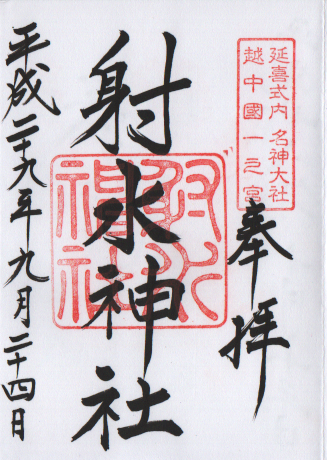 延喜式内 名神大社
越中國一之宮
奉拝
射水神社
射水神社
平成二十九年九月二十四日